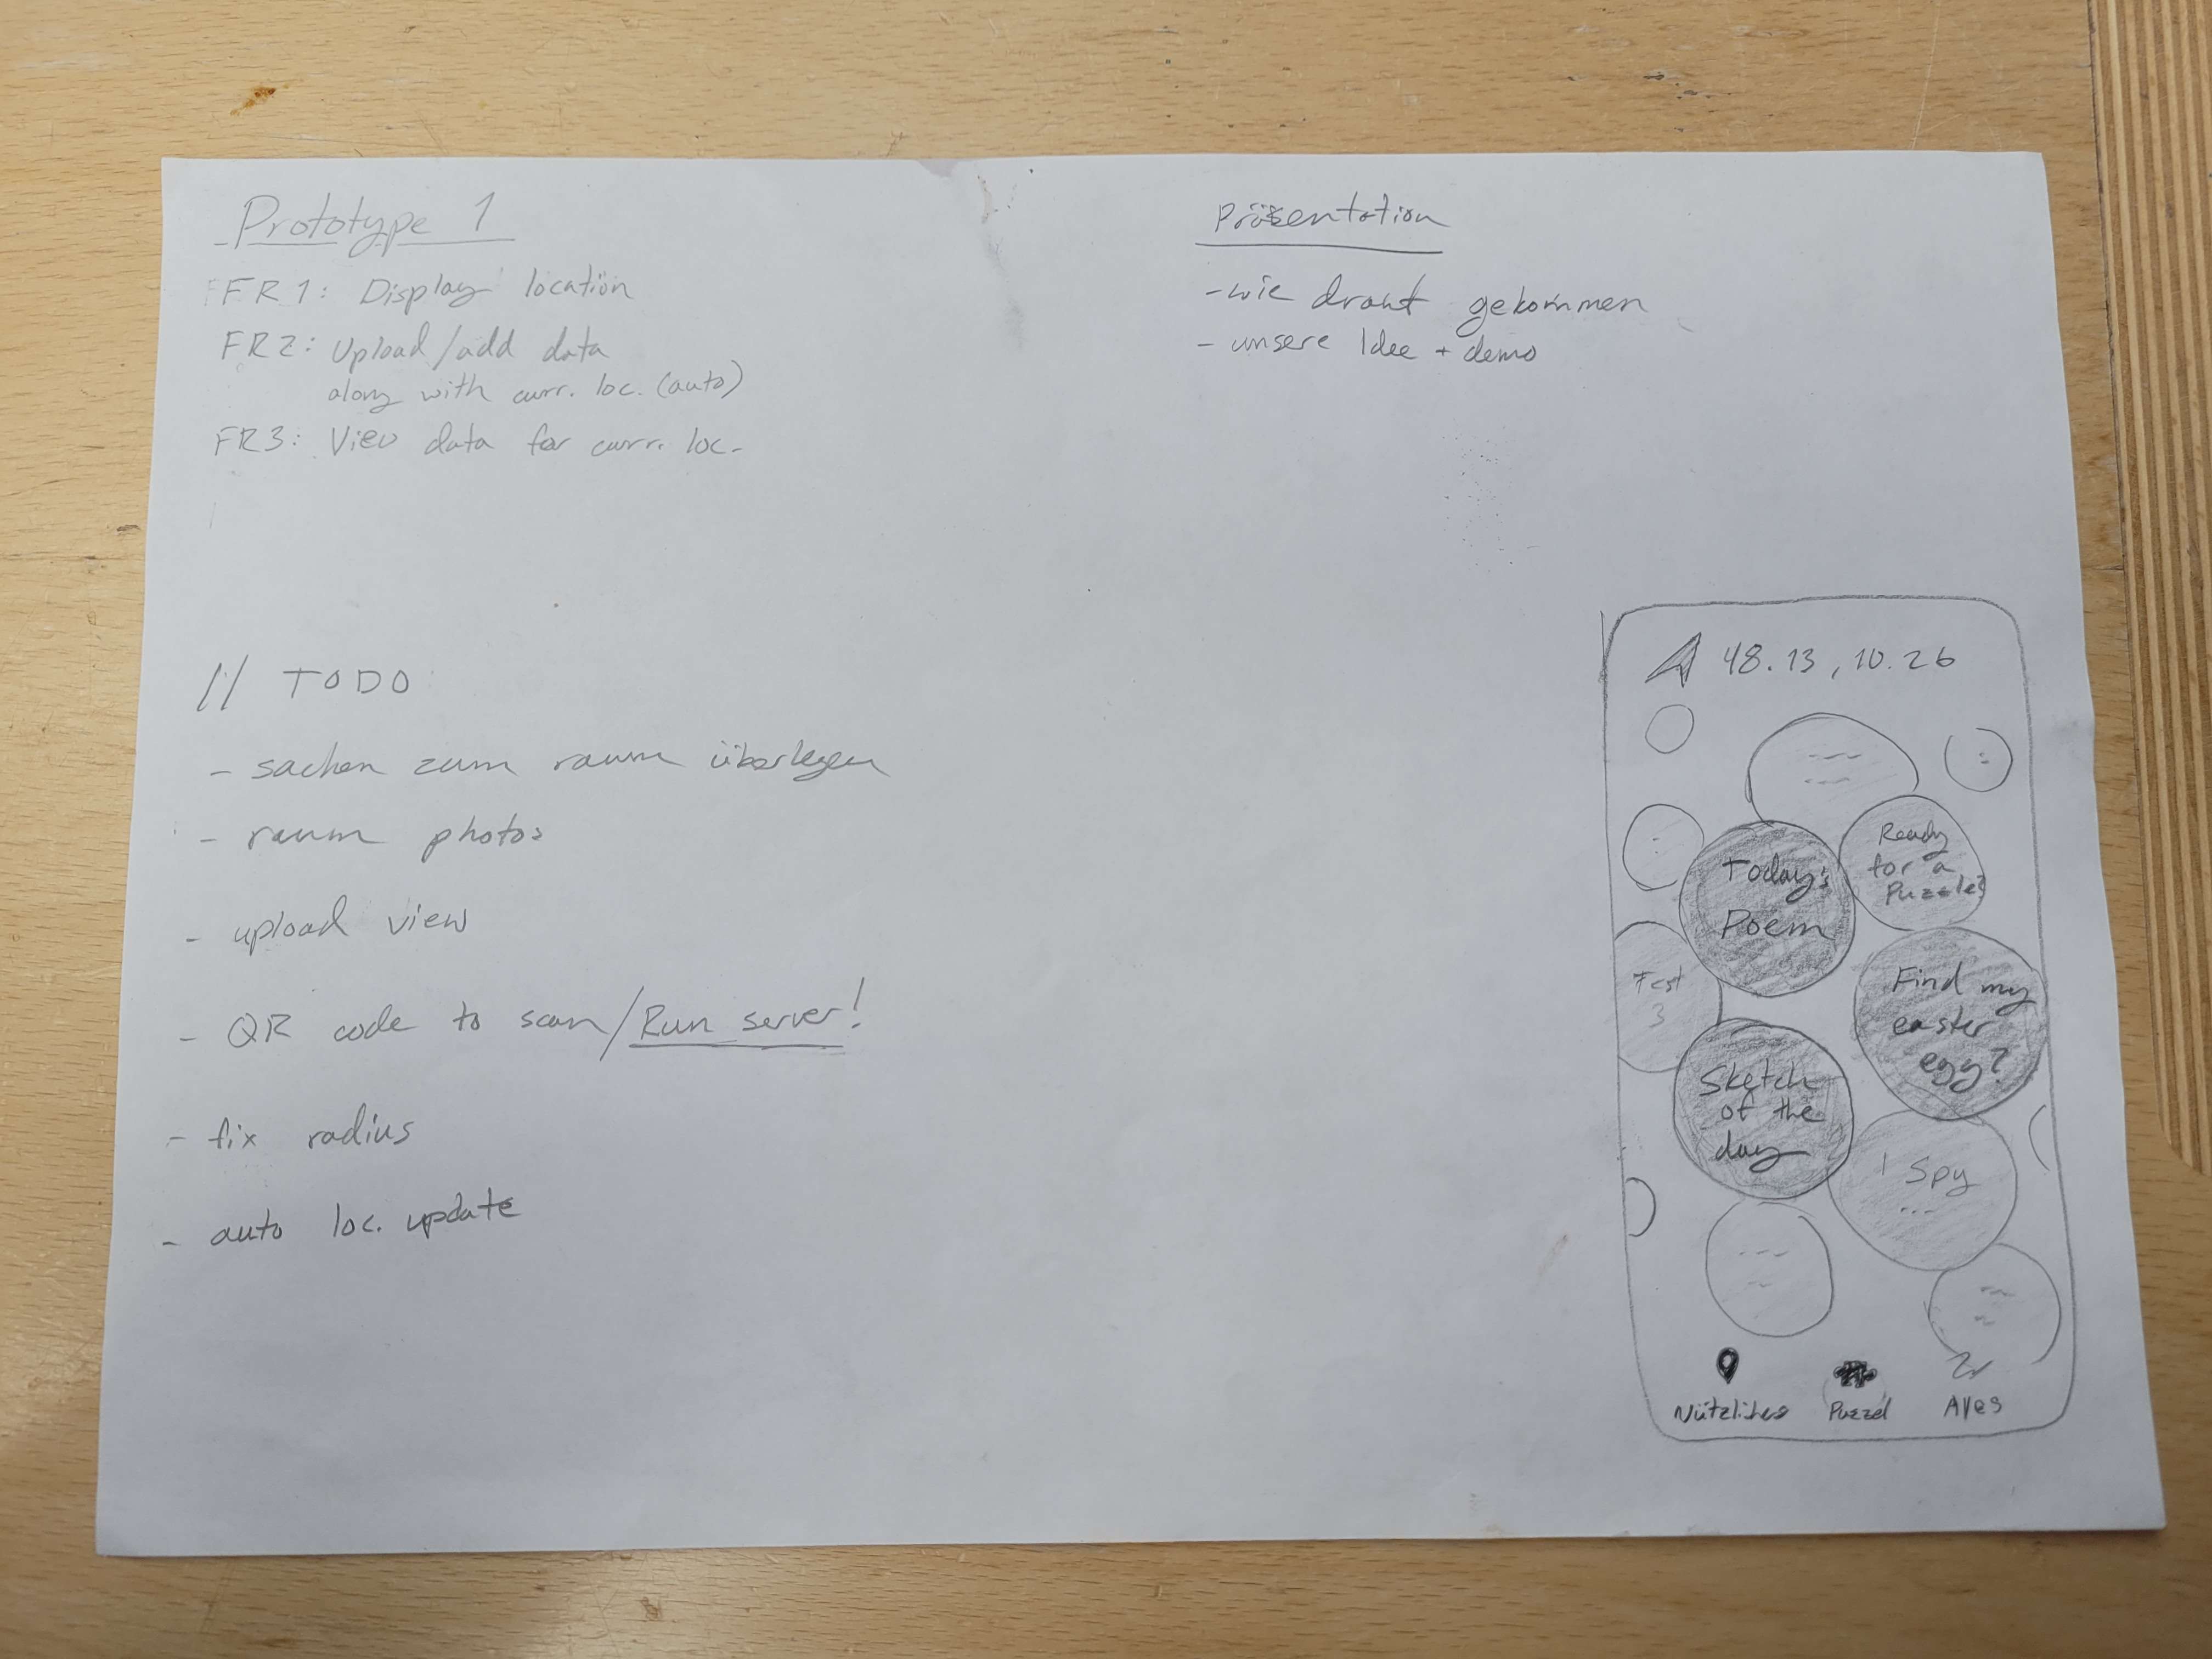 Prototype 1
FR1: Display location
FR2: Upload/add data
along with curr. loc. (auto)
FR3: View data for curr. loc.
// TODO
- sachen zum raum überlegen
- raum photos
- upload view
- QR code to scan/Run server!
- fix radius
- auto loc. update
Präsentation
- wie drauf gekommen
- unsere Idee + demo
48.13, 10.26
Today's
Poem
Ready
for a
Puzzle?
Test
3
Find my
easter
egg?
Sketch
of the
day
I Spy
...
Nützliches
Puzzel
Alles